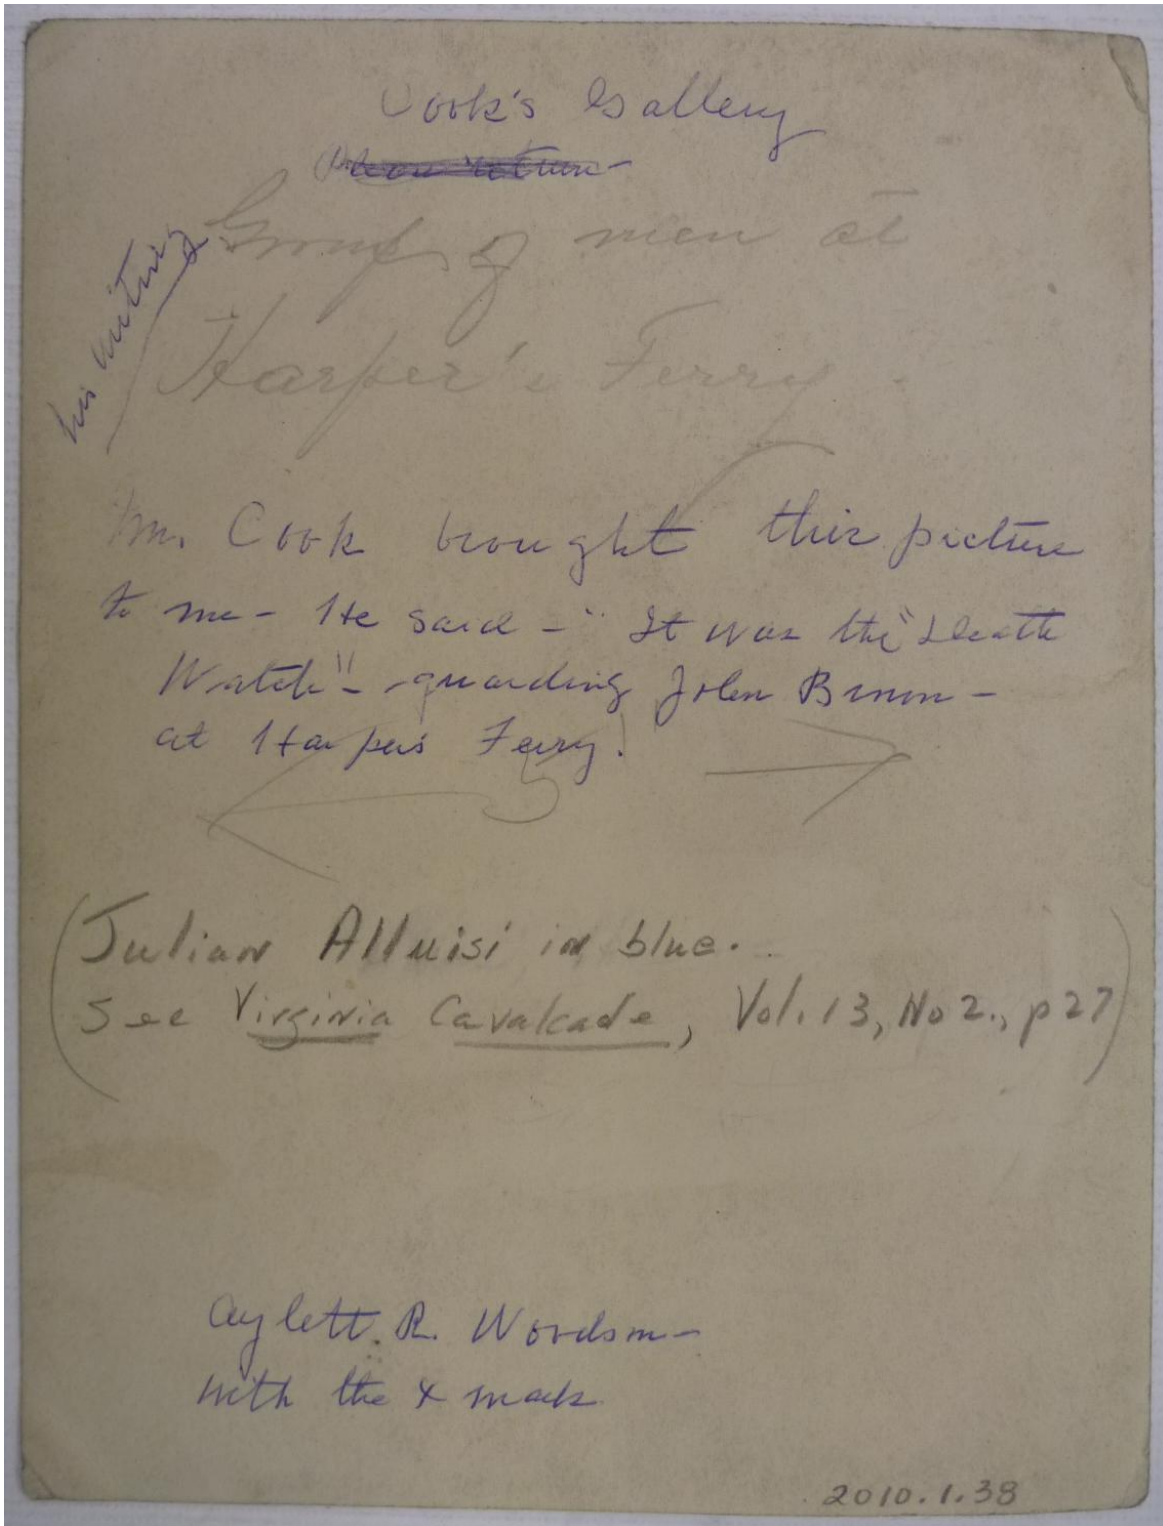 Cook's Gallery
Please return -
Group of men at
his writing
Harper's Ferry -
Mr. Cook brought this picture
to me - He said - "It was the "Death
Watch" - guarding John Brown -
at Harpers Ferry!
(Julian Alluisi in blue.
See Virginia Cavalcade, Vol. 13, No 2., p 27)
Aylett. R. Woodson -
with the x mark
2010.1.38